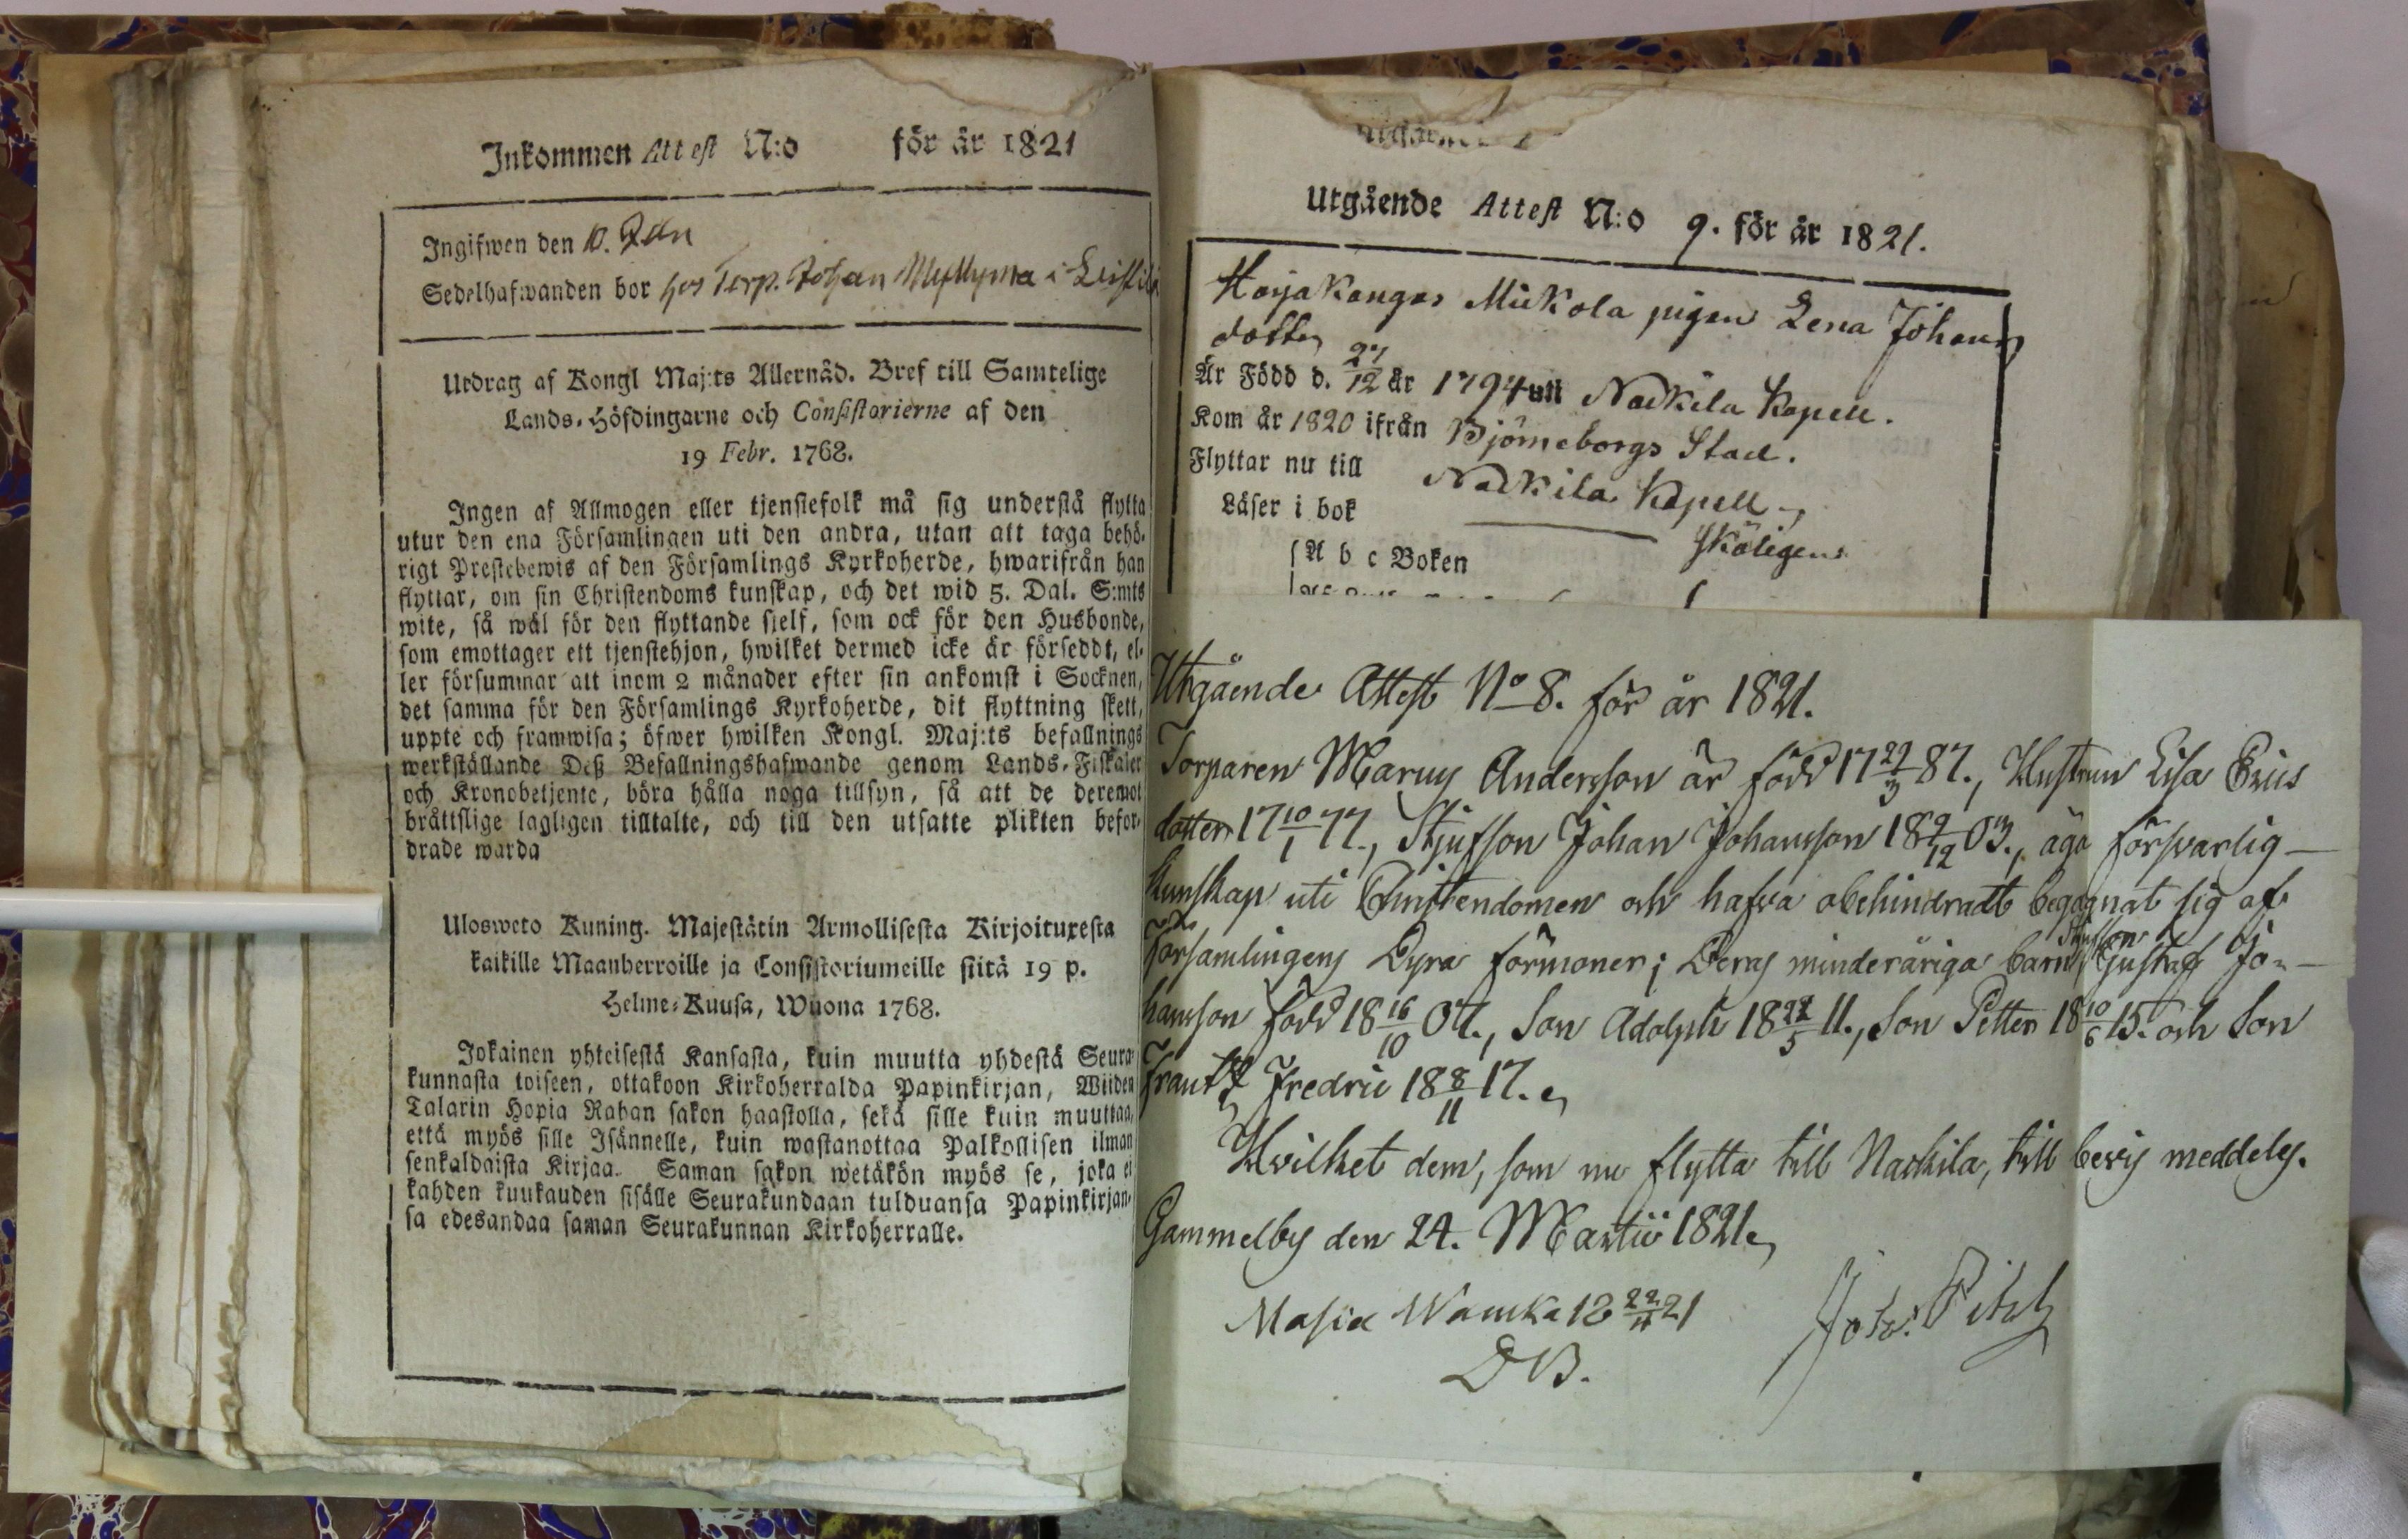 Inkommen Attest N:o för år 1821
Ingifwen den 10.
Sedelhafwanden bor hos Torp. Johan Myllyma i
Utdrag af Kongl Maj:ts Allernåd. Bref till Samtelige
Lands-Höfdingarne och Consistorierne af den
19 Febr. 1768.
Ingen af Allmogen eller tjenstefolk må sig understå flytta
utur den ena Församlingen uti den andra, utan att taga behö-
rigt Prestebewis af den Församlings Kyrkoherde, hwarifrån han
flyttar, om sin Christendoms kunskap, och det wid 5. Dal. S:mts
wite, så wäl för den flyttande sjelf, som ock för den Husbonde,
som emottager ett tjenstehjon, hwilket dermed icke är förseddt, el-
ler försummar att inom 2 månader efter sin ankomst i Socknen,
det samma för den Församlings Kyrkoherde, dit flyttning skett,
uppte och framwisa; öfwer hwilken Kongl. Maj:ts befallnings
werkställande Deß Befallningshafwande genom Lands-Fiskaler
och Kronobetjente, böra hålla noga tillsyn, så att de deremot
bråttslige lagligen tilltalte, och till den utsatte plikten befor-
drade warda
Ulosweto Kuning. Majestätin Armollisesta Kirjoituxesta
kaikille Maanherroille ja Consistoriumeille siitä 19 p.
Helme-Kuusa, Wuona 1768.
Jokainen yhteisestä Kansasta, kuin muutta yhdestä Seura-
kunnasta toiseen, ottakoon Kirkoherralda Papinkirjan, Wiiden
Talarin Hopia Rahan sakon haastolla, sekä sille kuin muuttaa,
että myös sille Isännelle, kuin wastanottaa Palkollisen ilman
senkaldaista Kirjaa. Saman sakon wetäkön myös se, joka ei
kahden kuukauden sisälle Seurakundaan tulduansa Papinkirjan-
sa edesandaa saman Seurakunnan Kirkoherralle.
Utgående Attest N:o 9. för år 1821.
Harjakangas Mickola pigan Lena Johans
dotter
Är Född d. 27/12 år 1794 uti Nackila Kapell.
Kom år 1820 ifrån Björneborgs Stad.
Flyttar nu till Nackila Kapell
Läser i bok skäligen
A b c Boken
Utgående Attest No 8. för år 1821.
Torparen Marcus Andersson är född 17 29/3 87., Hustrun Lisa Erics
dotter 17 10/1 77., Stjufson Johan Johansson 18 9/12 03., äga försvarlig
kunskap uti Christendomen och hafva obehindradt begagnat sig af
Församlingens Dyra förmoner; Deras minderåriga barn, Stjufson Gustaf Jo-
hansson född 18 16/10 07., Son Adolph 18 22/5 11., Son Petter 18 10/6 15. och Son
Frantz Fredric 18 8/11 17.
Hvilket dem, som nu flytta till Nackila, till bevis meddeles.
Gammelby den 24. Martii 1821
Masia Wamka 18 22/4 21
DB.